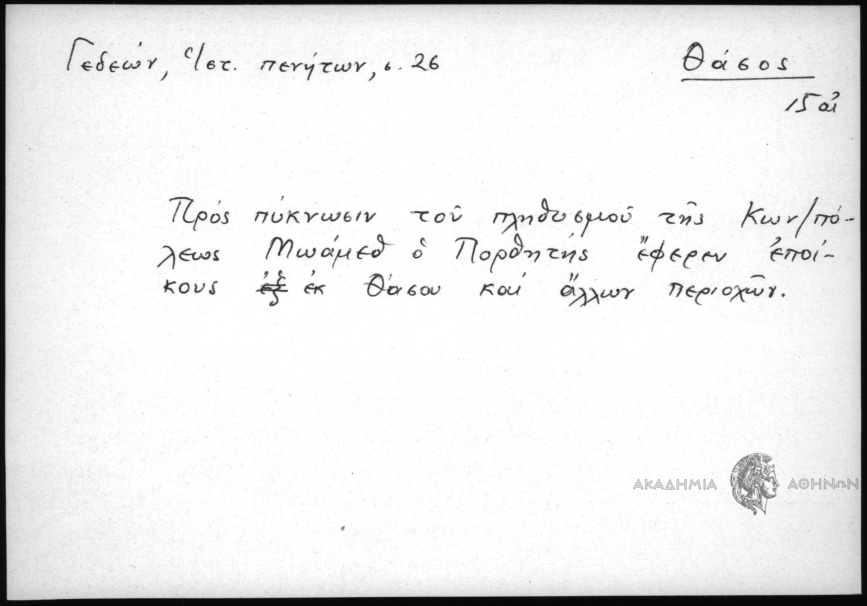 Γεδεών, Ἱστ. πενήτων, σ. 26
Θάσος
15 αἰ
Πρός πύκνωσιν τοῦ πληθυσμοῦ τῆς Κων/πό-
λεως Μωάμεθ ὁ Πορθητής ἔφερεν ἐποί-
κους ἐξ ἐκ Θάσου καί ἄλλων περιοχῶν.
ΑΚΑΔΗΜΙΑ ΑΘΗΝΩΝ